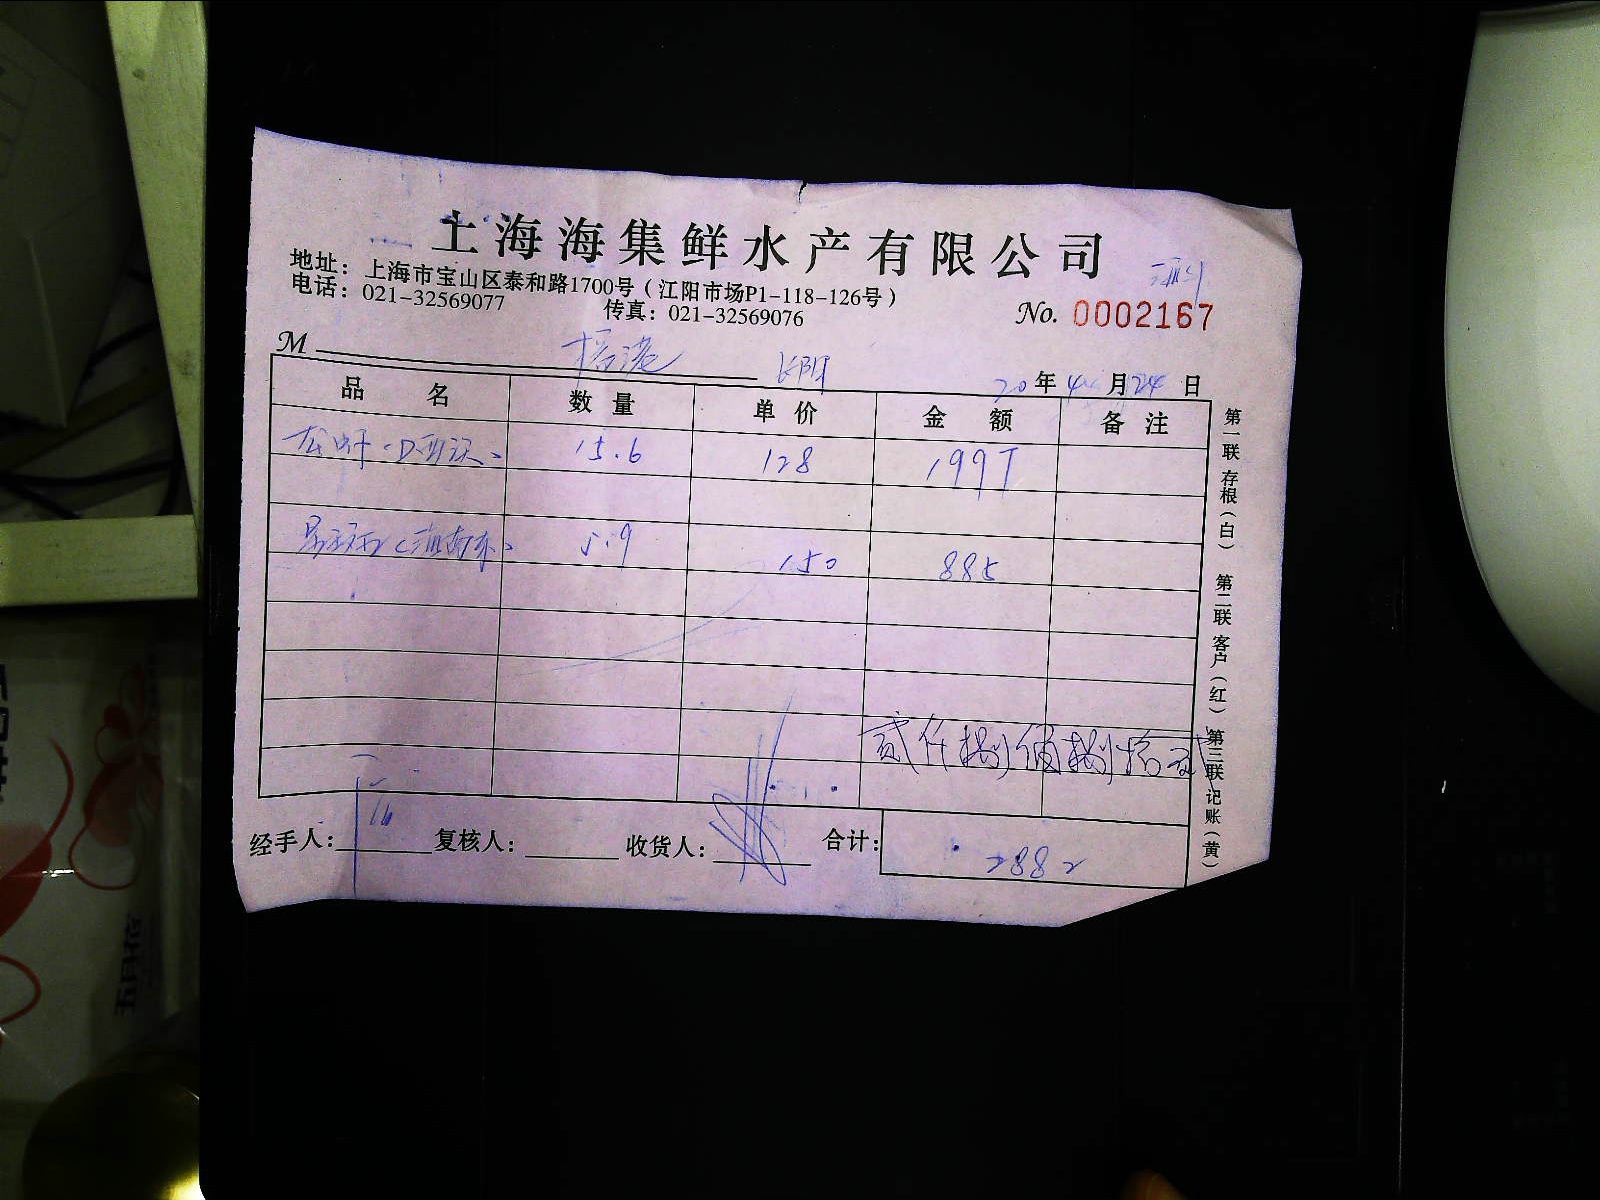 上海海集鲜水产有限公司
地址：上海市宝山区泰和路1700号（江阳市场P1-118-126号）
电话：021-32569077 传真：021-32569076
No. 0002167
M 长阳
20年4月24日
品名 数量 单价 金额 备注
15.6 128 1997
5.9 150 885
贰仟捌佰捌拾贰
经手人： 复核人： 收货人： 合计： 2882
第一联 存根（白） 第二联 客户（红） 第三联 记账（黄）
五月花